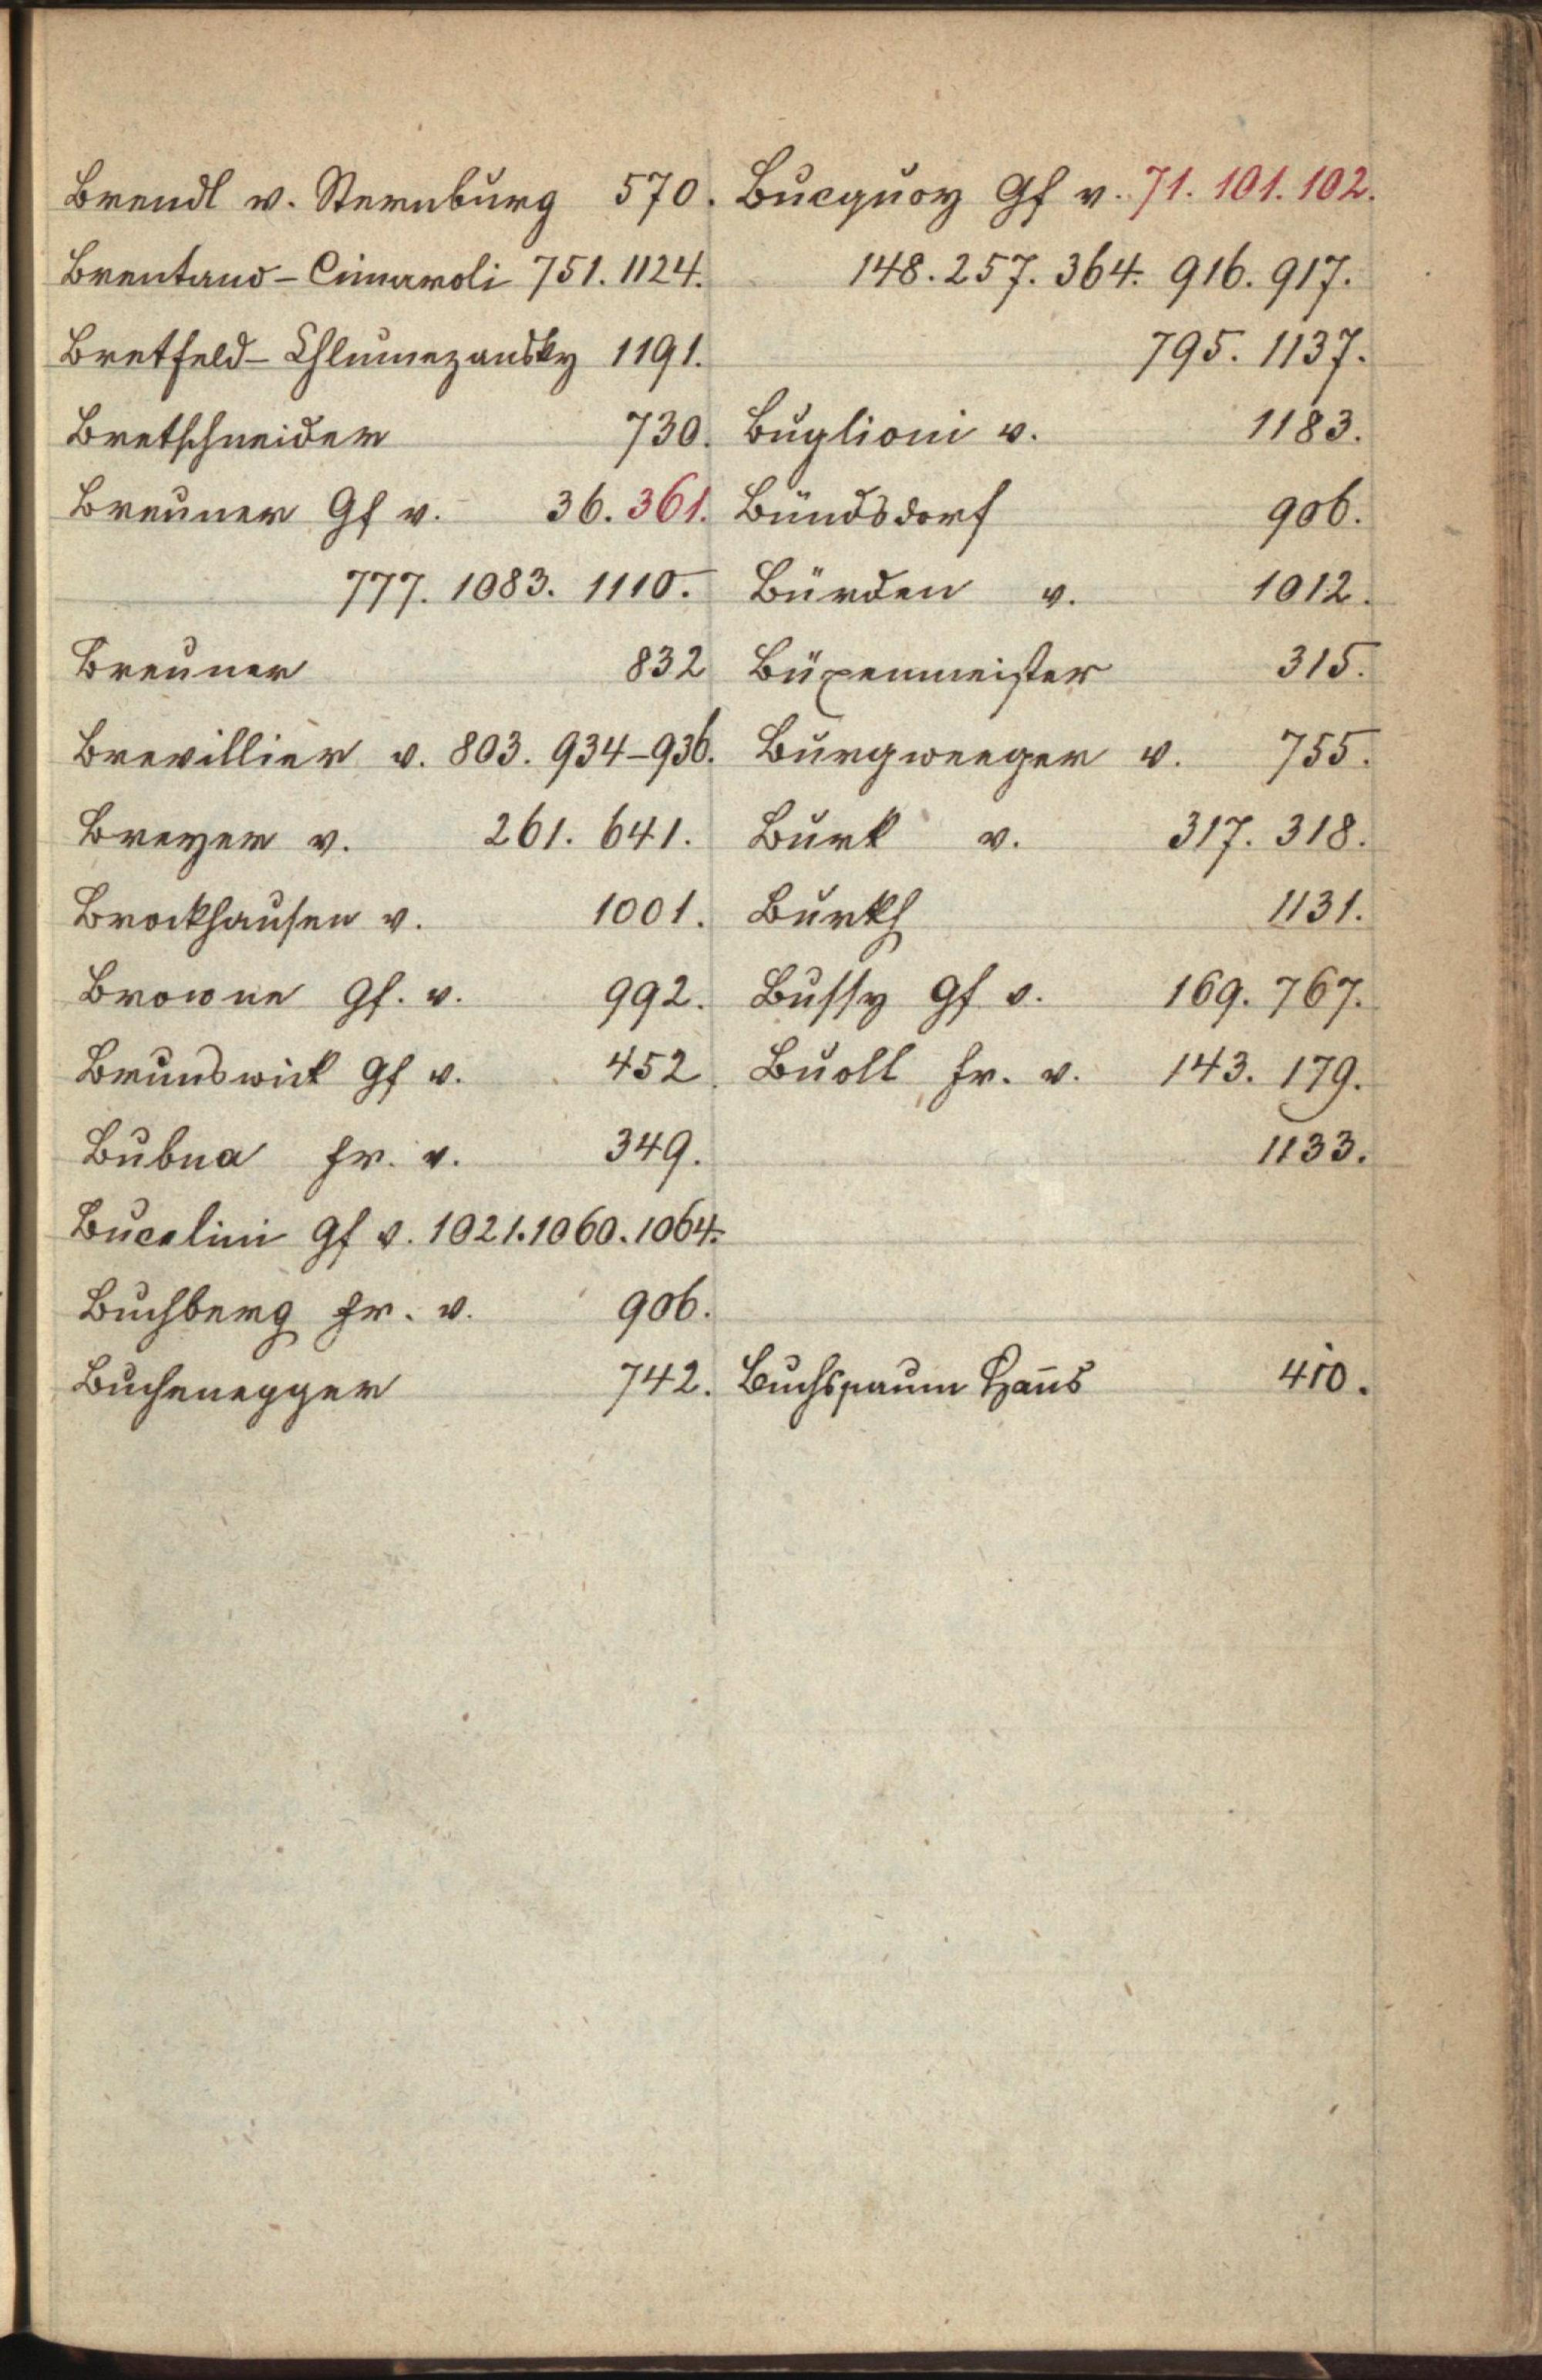 Brendl v. Sternburg 570.
Brentano-Cimaroli 751. 1124.
Bretfeld-Chlumezansky 1191.
Bretschneider 730.
Breuner Gf v. 36. 361.
777. 1083. 1110.
Breuner 832
Brevillier v. 803. 934-936.
Breyer v. 261. 641.
Brockhausen v. 1001.
Browne Gf. v. 992.
Brunswick Gf v. 452.
Bubna Fr. v. 349.
Bucelini Gf v. 1021. 1060. 1064.
Buchberg Fr. v. 906.
Buchenegger 742.
Bucquoy Gf v. 71. 101. 102.
148. 257. 364. 916. 917.
795. 1137.
Buglioni v. 1183.
Bündsdorf 906.
Bürden v. 1012.
Büxenmeister 315.
Burgweeger v. 755.
Burk v. 317. 318.
Burkh 1131.
Bussy Gf v. 169. 767.
Buoll Fr. v. 143. 179.
1133.
Buchspaum Han̄s 410.